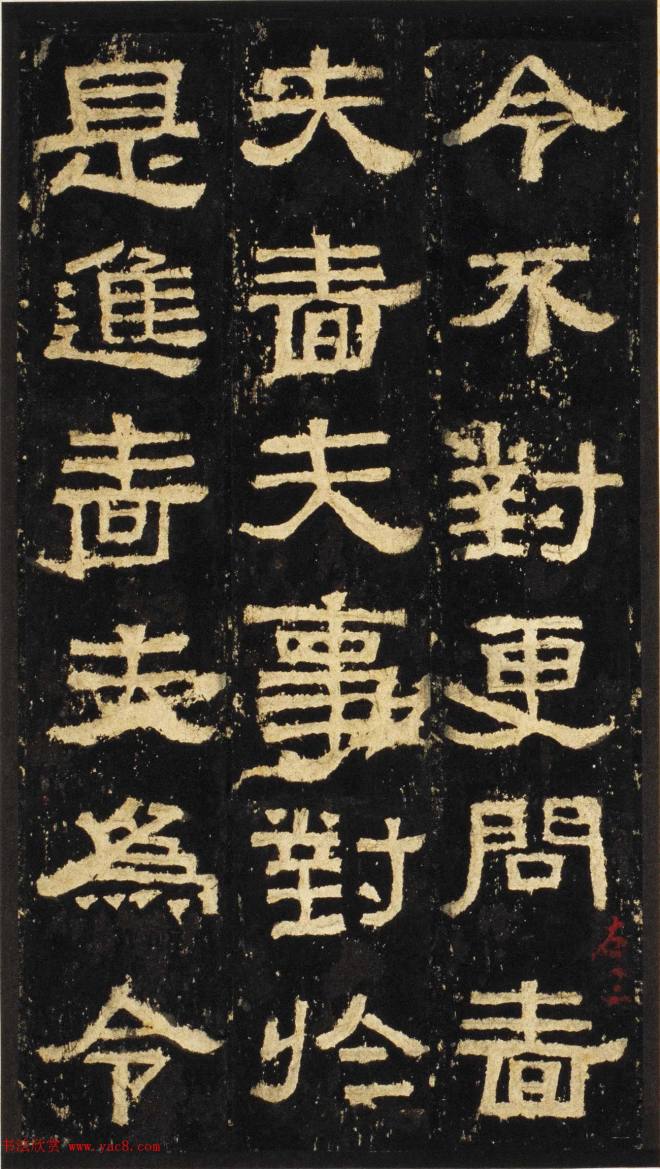 令不對更問嗇
夫嗇夫事對於
是進嗇夫為令
书法欣赏 www.yac8.com